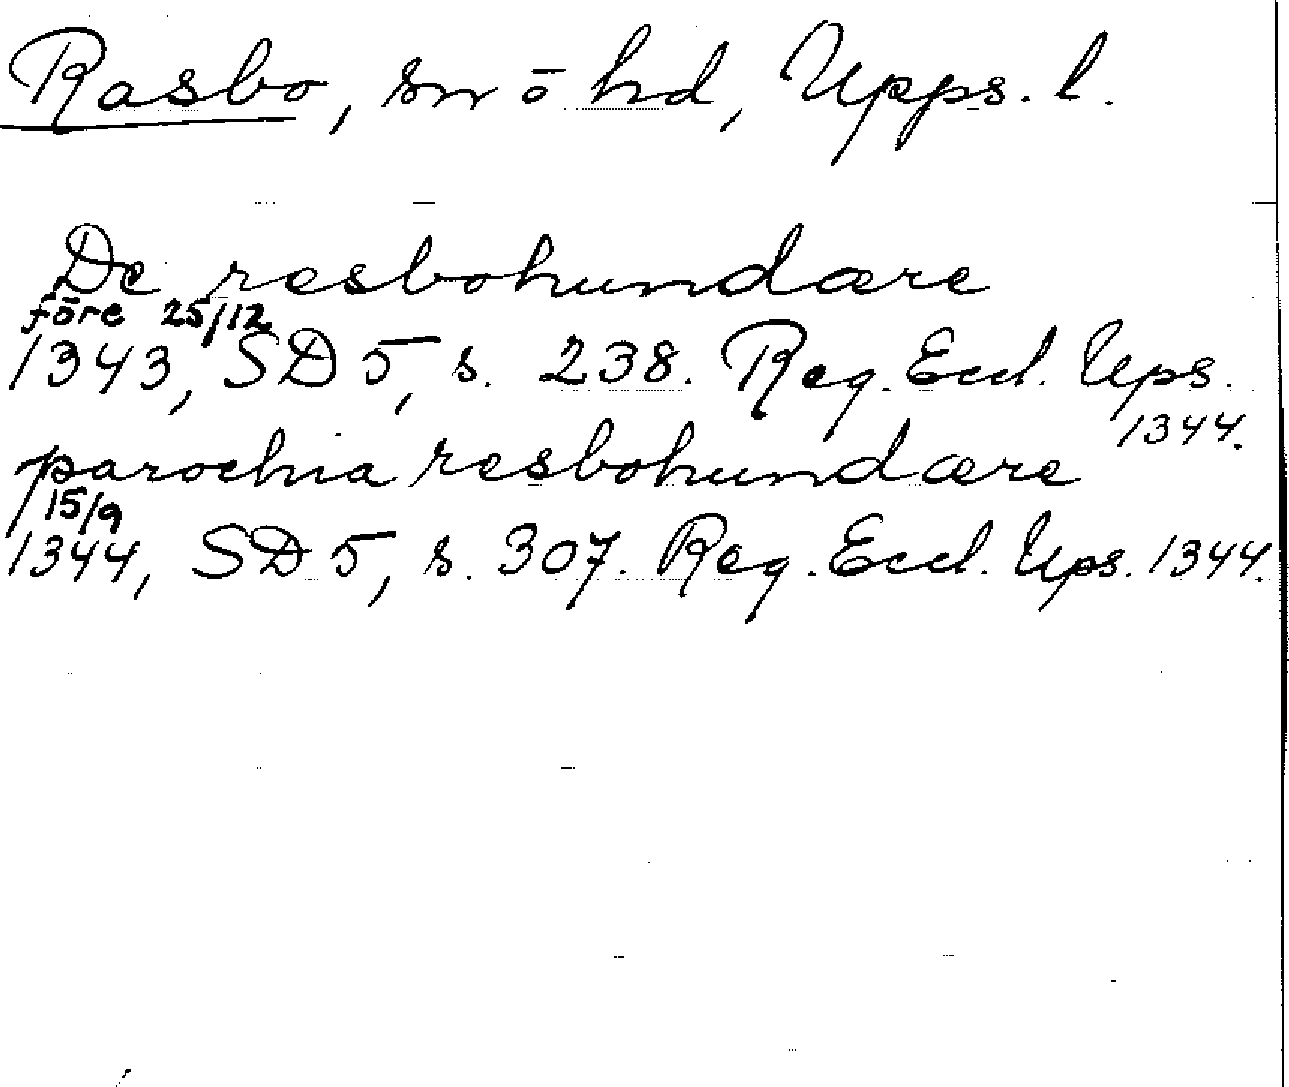 Rasbo, sn ō hd, Upps. l.
De resbohundære
före 25/12
1343, SD 5, s. 238. Reg. Eccl. Ups.
1344.
parochia resbohundære
15/9
1344, SD 5, s. 307. Reg. Eccl. Ups. 1344.